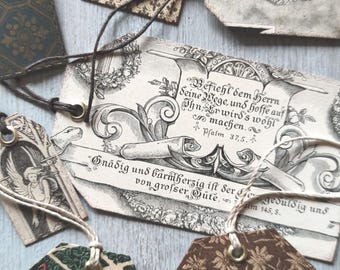 Befiehl dem Herrn
deine Wege, und hoffe auf
Ihn, Er wird's wohl
machen.
Psalm 37,5.
Gnädig und barmherzig ist der
geduldig und
von großer Güte.
145, 8.